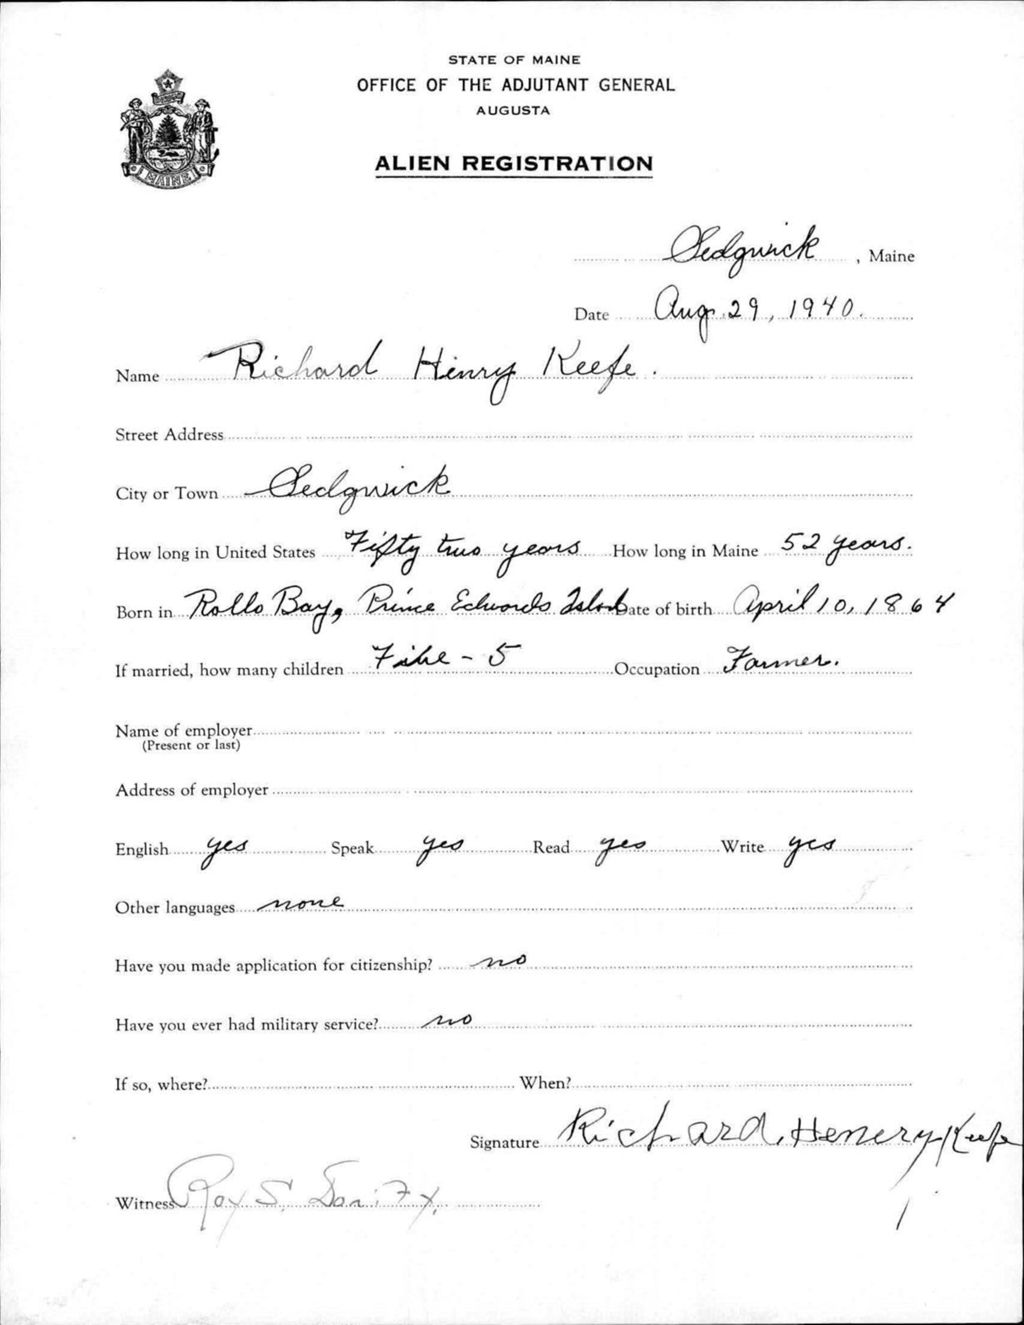 STATE OF MAINE
OFFICE OF THE ADJUTANT GENERAL
AUGUSTA
ALIEN REGISTRATION
MAINE
Sedgwick, Maine
Date Aug. 29, 1940.
Name Richard Henry Keefe.
Street Address
City or Town Sedgwick
How long in United States Fifty two years How long in Maine 52 years.
Born in Rollo Bay, Prince Edwards Island Date of birth April 10, 1864
If married, how many children Five - 5 Occupation Farmer.
Name of employer
(Present or last)
Address of employer
English yes Speak yes Read yes Write yes
Other languages none
Have you made application for citizenship? no
Have you ever had military service? no
If so, where? When?
Signature Richard, Henery Keefe
Witness Roy S.